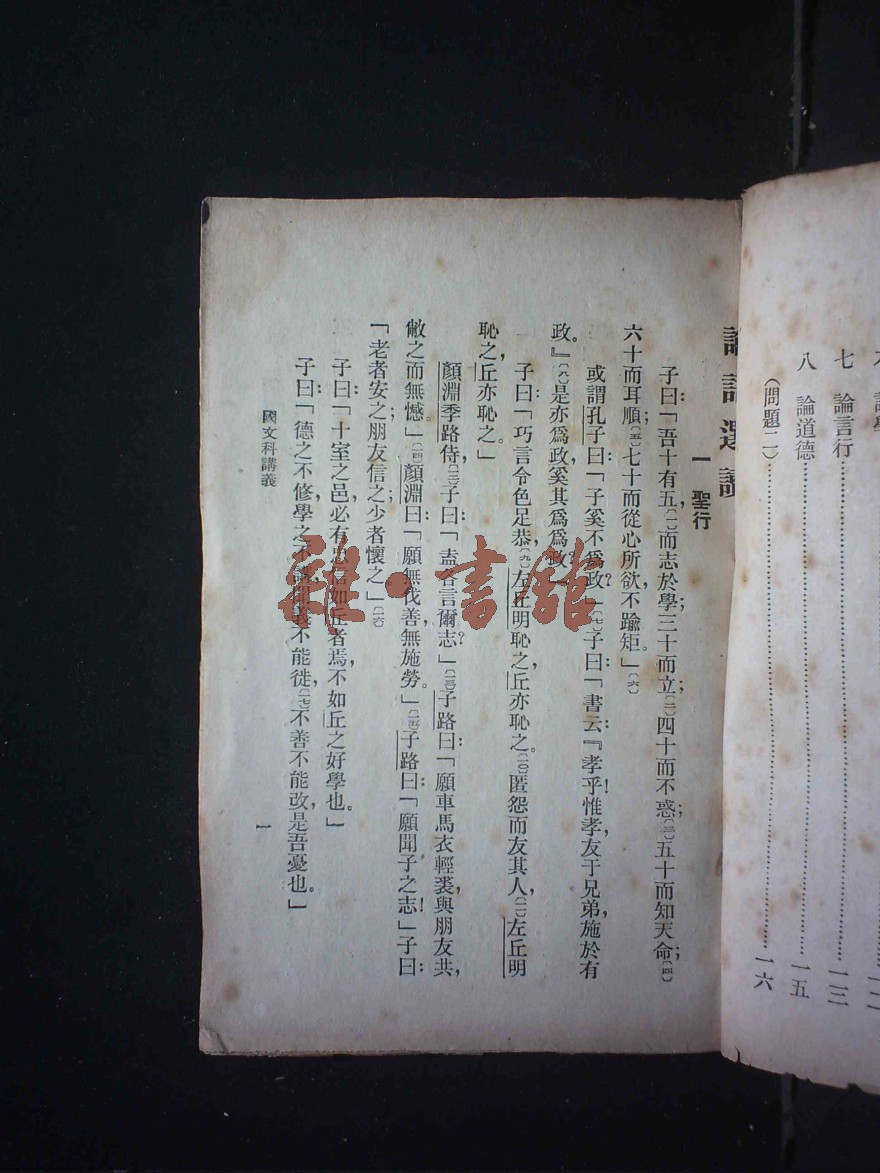 七　論言行⋯⋯⋯⋯⋯⋯一三
八　論道德⋯⋯⋯⋯⋯⋯一五
（問題二）⋯⋯⋯⋯⋯⋯一六
論語選讀
一　聖行
子曰：「吾十有五〔一〕而志於學；三十而立；〔二〕四十而不惑；〔三〕五十而知天命；〔四〕
六十而耳順；〔五〕七十而從心所欲，不踰矩。」〔六〕
或謂孔子曰：「子奚不爲政？」〔七〕子曰：「書云：『孝乎！惟孝，友于兄弟，施於有
政。』〔八〕是亦爲政，奚其爲爲政？」
子曰：「巧言令色足恭，〔九〕左丘明恥之，丘亦恥之。〔一〇〕匿怨而友其人，〔一一〕左丘明
恥之，丘亦恥之。」
顏淵季路侍，〔一二〕子曰：「盍各言爾志？」〔一三〕子路曰：「願車馬衣輕裘，與朋友共，
敝之而無憾。」〔一四〕顏淵曰：「願無伐善，無施勞。」〔一五〕子路曰：「願聞子之志！」子曰：
「老者安之；朋友信之；少者懷之。」〔一六〕
子曰：「十室之邑，必有忠信如丘者焉，不如丘之好學也。」
子曰：「德之不修，學之不講，聞義不能徙，〔一七〕不善不能改，是吾憂也。」
國文科講義
一
雜·書館